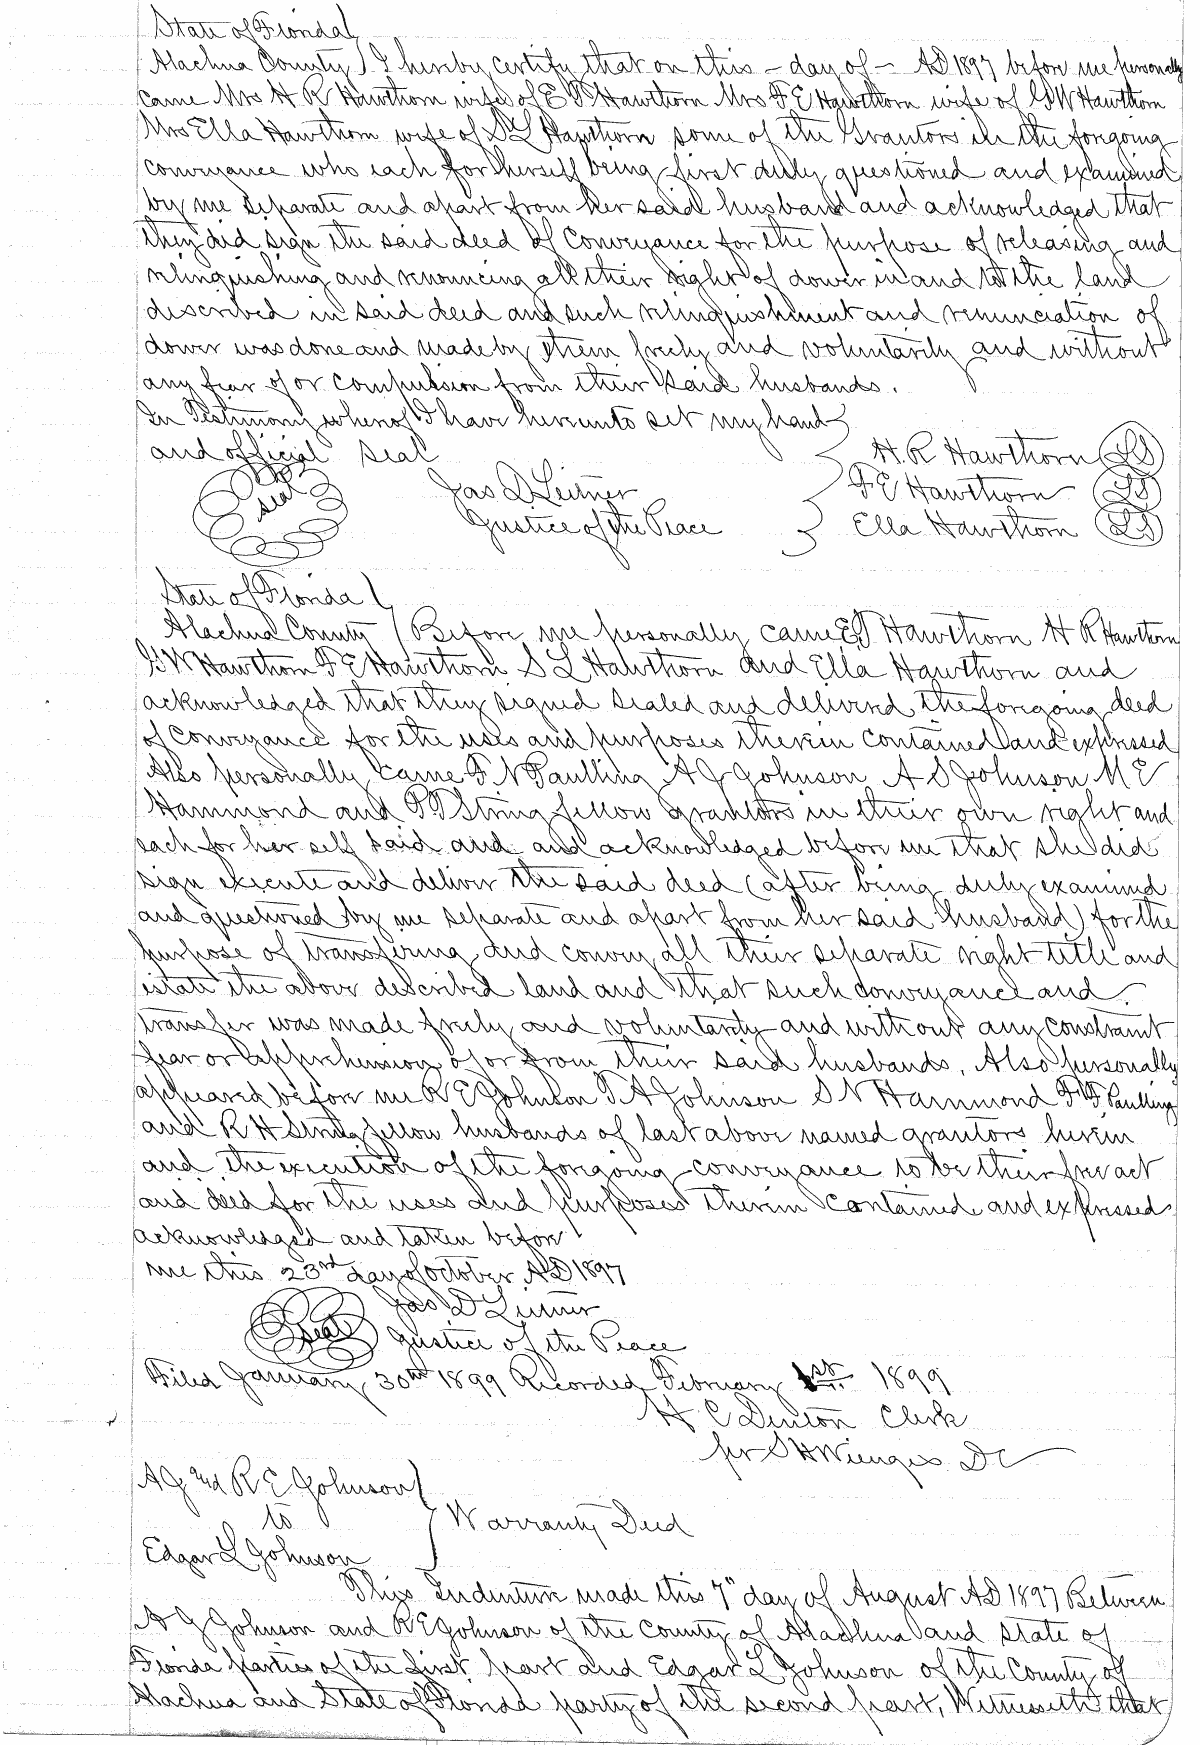 State of Florida
Alachua County I hereby certify that on this - day of - AD 1897 before me personally
came Mrs H R Hawthorn wife of Hawthorn Mrs F E Hawthorn wife of G W Hawthorn
Mrs Ella Hawthorn wife of S L Hawthorn some of the Grantors in the forgoing
conveyance who each for herself being first duly questioned and examined
by me separate and apart from her said husband and acknowledged that
they did sign the said deed of Conveyance for the purpose of releasing and
relinquishing and renouncing all their right of dower in and to the land
described in said deed and such relinquishment and renunciation of
dower was done and made by them freely and voluntarily and without
any fear of or compulsion from their said husbands.
In Testimony whereof I have hereunto set my hand
and official seal
H. R Hawthorn LS
seal Jas D Leitner F E Hawthorn LS
Justice of the Peace Ella Hawthorn LS
State of Florida
Alachua County Before me personally came Hawthorn H R Hawthorn
G W Hawthorn F E Hawthorn S L Hawthorn and Ella Hawthorn and
acknowledged that they signed sealed and delivered the foregoing deed
of Conveyance for the uses and purposes therein contained and expressed
Also personally came F N Paulling A J Johnson A S Johnson M E
Hammond and Stringfellow grantors in their own right and
each for her self said and and acknowledged before me that she did
sign execute and deliver the said deed (after being duly examined
and questioned by me separate and apart from her said husband) for the
purpose of transfering and convey all their separate right title and
estate the above described land and that such conveyance and
transfer was made freely and voluntarily and without any constraint
fear or apprehension of or from their said husbands. Also personally
appeared before me R E Johnson T A Johnson S N Hammond Paulling
and R H Stringfellow husbands of last above named grantors herein
and the execution of the forgoing conveyance to be their free act
and deed for the uses and purposes therein contained and expressed
acknowledged and taken before
me this 23rd day of October AD 1897
Jas D Leitner
Seal Justice of the Peace
Filed January 30th 1899 Recorded February 1st 1899
H C Denton Clerk
per S H Wienges DC
A J and R E Johnson
to Warranty Deed
Edgar L Johnson
This Indenture made this 7" day of August AD 1897 Between
A J Johnson and R E Johnson of the County of Alachua and State of
Florida parties of the first part and Edgar L Johnson of the County of
Alachua and State of Florida party of the second part, Witnesseth that